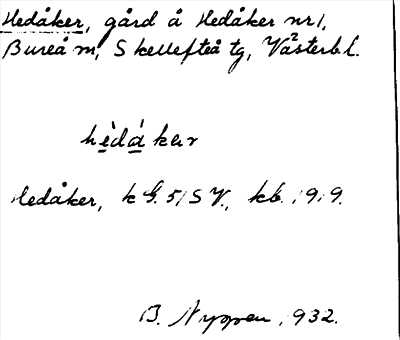 Hedåker, gård å Hedåker nr 1,
Bureå m, Skellefteå tg, Västerb l.
hèdákar
Hedåker, k G. 51 S V., kb. 1919.
B. Nyppen, 1932.